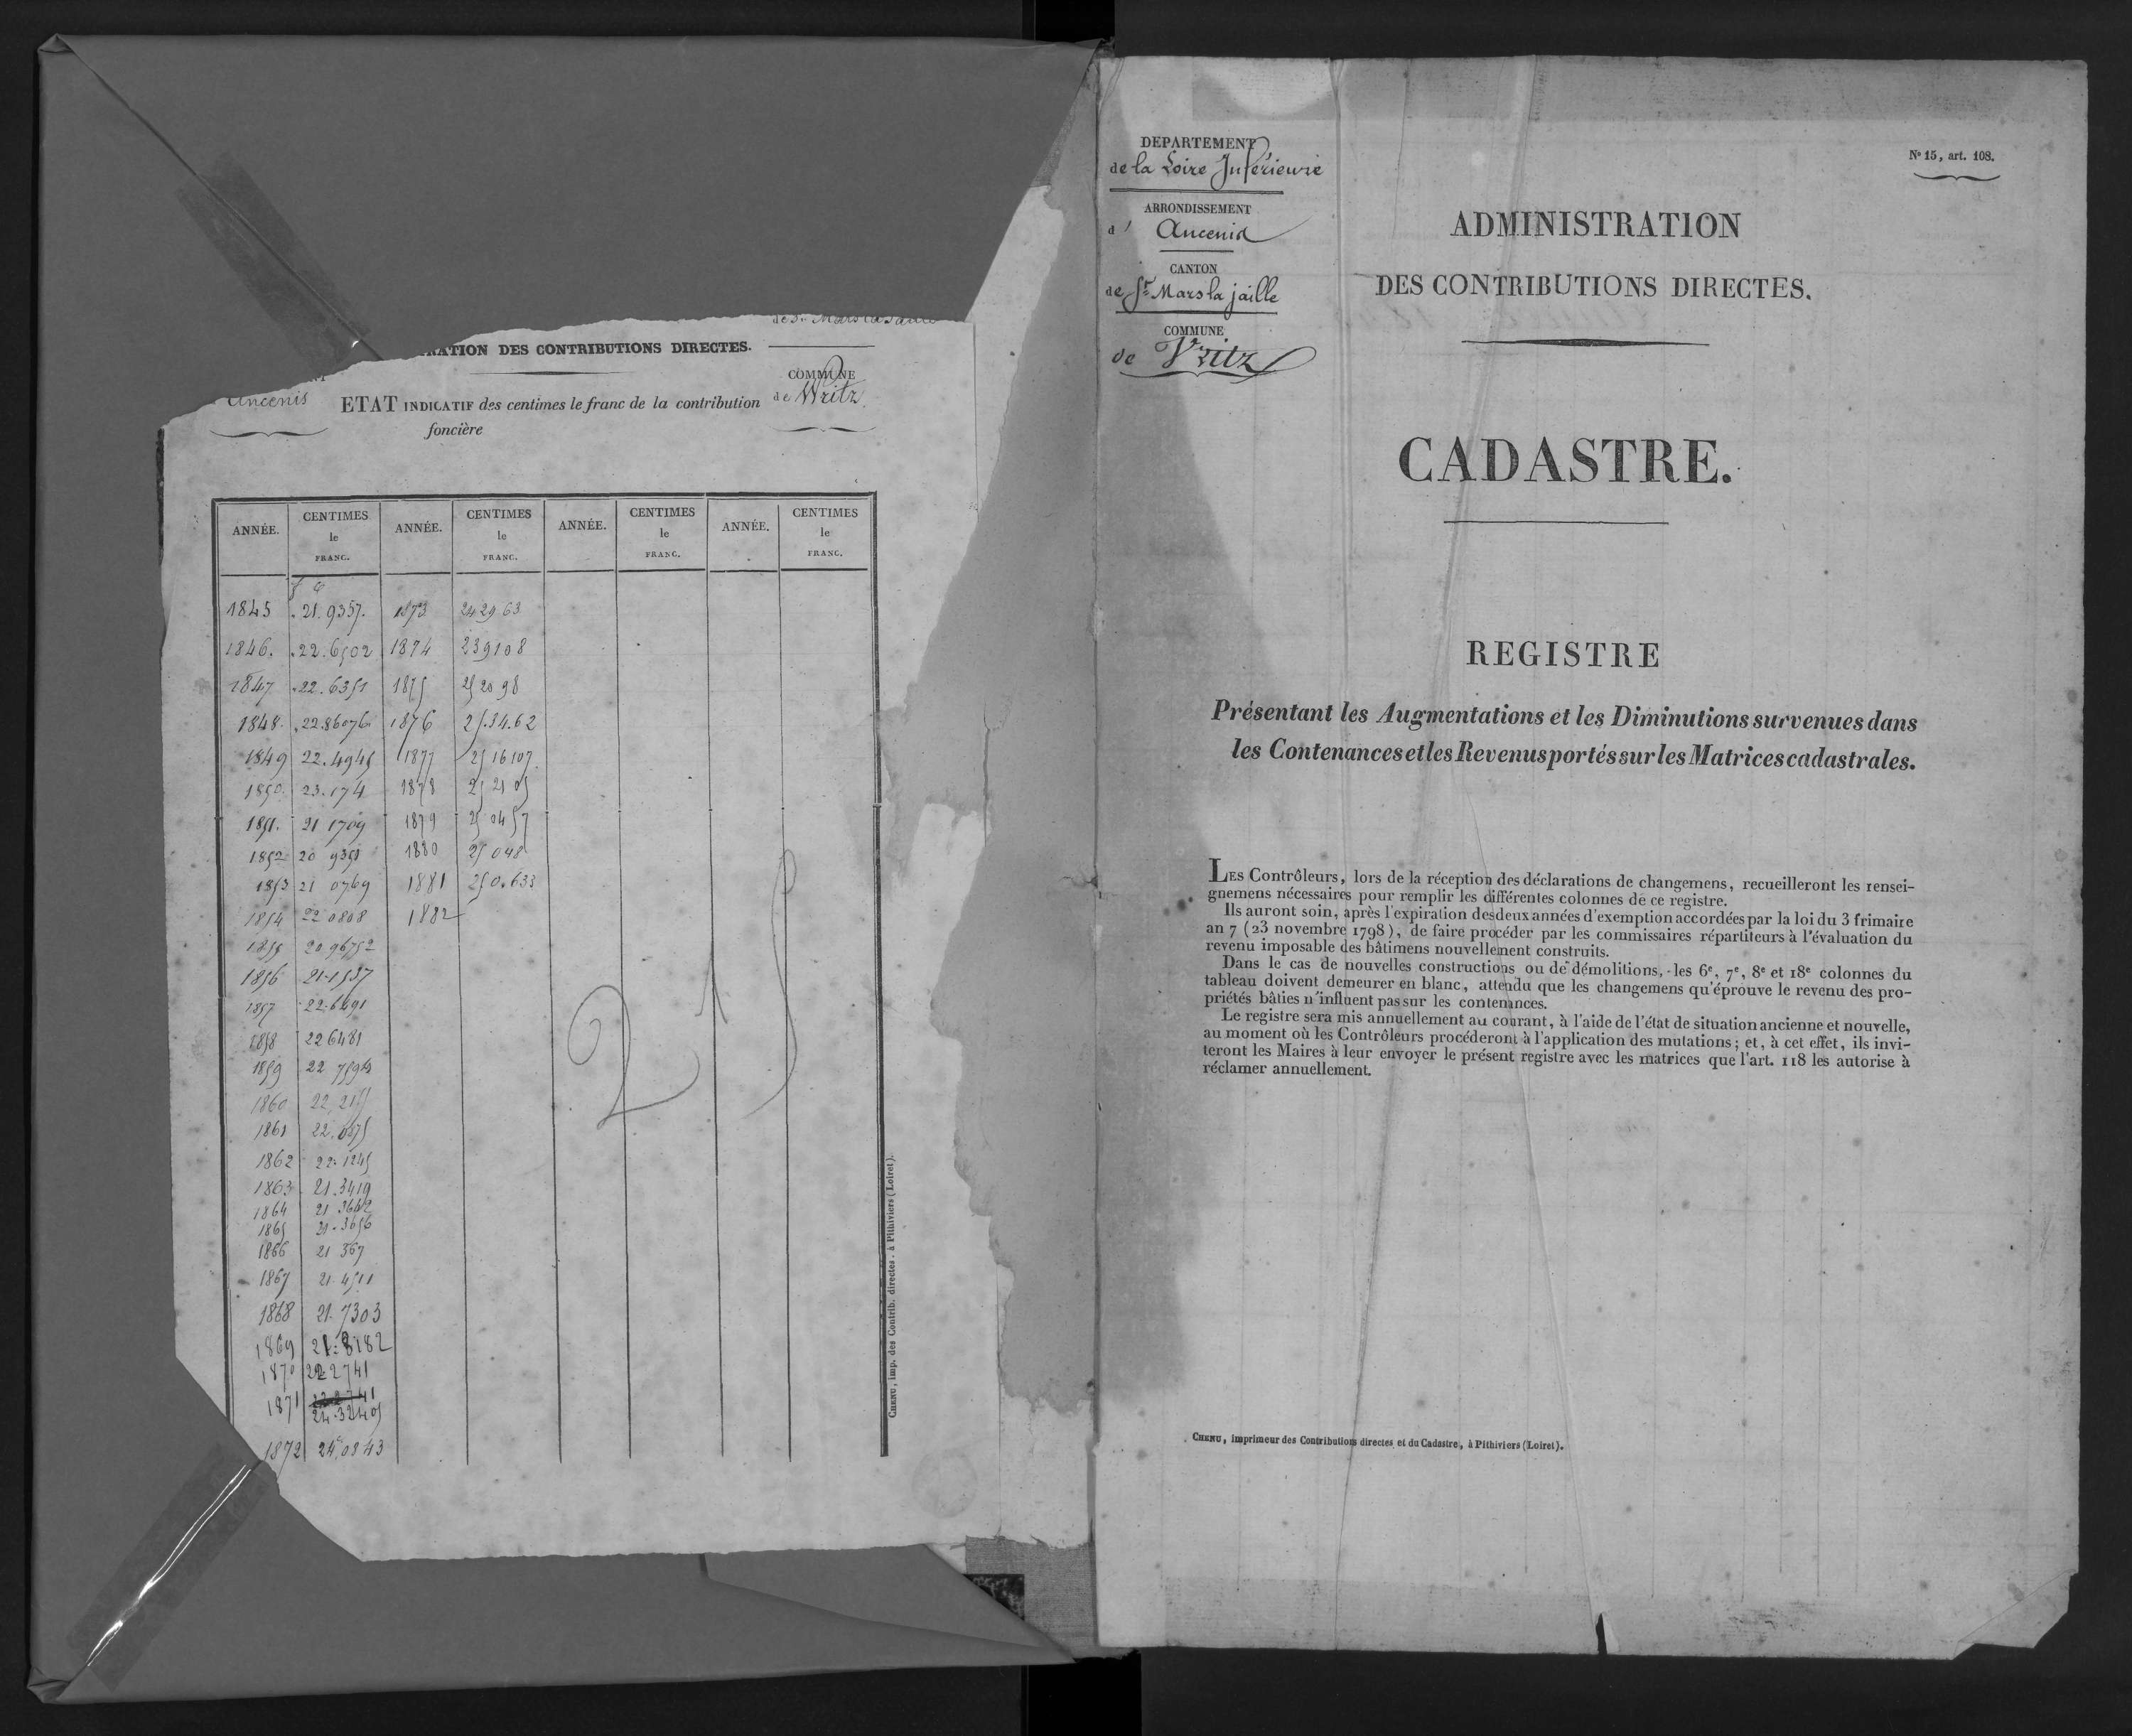 de St Mars la Jaille
RATION DES CONTRIBUTIONS DIRECTES.
COMMUNE
de Writz
Ancenis
ETAT INDICATIF des centimes le franc de la contribution
foncière
ANNÉE. CENTIMES le FRANC. ANNÉE. CENTIMES le FRANC. ANNÉE. CENTIMES le FRANC. ANNÉE. CENTIMES le FRANC.
1845 21.9357. 1873 242963
1846. 22.6502 1874 239108
1847 22.6351 1875 252098
1848. 22.86076 1876 25.34.62
1849 22.4945 1877 2516107
1850. 23.174 1878 252105
1851. 21 1709 1879 250457
1852 20 9351 1880 25048
1853 21 0769 1881 250.633
1854 22 0808 1882
1855 20 96752
1856 21.1537
1857 22.6491
1858 226481
1859 22
1860 22.
1861 22.
1862 22.1245
1863 21.3419
1864 21 3642
1865 21.3656
1866 21 367
1867 21.4511
1868 21.7303
1869 21.8182
1870 222741
1871 222741
24.32405
1872 24.0843
CHENU, imp. des Contrib. directes, à Pithiviers (Loiret).
DEPARTEMENT
de la Loire Inférieure
ARRONDISSEMENT
d' Ancenis
CANTON
de St Mars la jaille
COMMUNE
de Vritz
No 15, art. 108.
ADMINISTRATION
DES CONTRIBUTIONS DIRECTES.
CADASTRE.
REGISTRE
Présentant les Augmentations et les Diminutions survenues dans
les Contenances et les Revenus portés sur les Matrices cadastrales.
LES Contrôleurs, lors de la réception des déclarations de changemens, recueilleront les rensei-
gnemens nécessaires pour remplir les différentes colonnes de ce registre.
Ils auront soin, après l'expiration des deux années d'exemption accordées par la loi du 3 frimaire
an 7 (23 novembre 1798), de faire procéder par les commissaires répartiteurs à l'évaluation du
revenu imposable des bâtimens nouvellement construits.
Dans le cas de nouvelles constructions ou de démolitions, les 6e, 7e, 8e et 18e colonnes du
tableau doivent demeurer en blanc, attendu que les changemens qu'éprouve le revenu des pro-
priétés bâties n'influent pas sur les contenances.
Le registre sera mis annuellement au courant, à l'aide de l'état de situation ancienne et nouvelle,
au moment où les Contrôleurs procéderont à l'application des mutations; et, à cet effet, ils invi-
teront les Maires à leur envoyer le présent registre avec les matrices que l'art. 118 les autorise à
réclamer annuellement.
CHENU, imprimeur des Contributions directes et du Cadastre, à Pithiviers (Loiret).